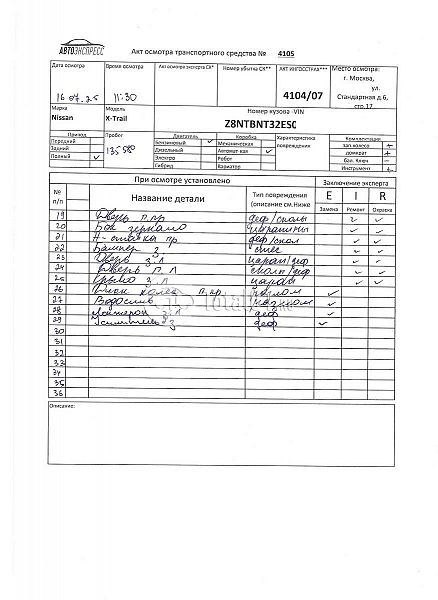 АВТОЭКСПРЕСС
Акт осмотра транспортного средства № 4105
Дата осмотра Время осмотра Акт осмотра страховой СК* Номер убытка СК** АКТ ИНГОССТРАХ*** Место осмотра:
г. Москва,
ул.
Стандартная д.6,
стр.17
16.07.25 11:30 4104/07
Марка Модель Номер кузова -VIN
Nissan X-Trail Z8NTBNT32ES
Привод Пробег Двигатель Коробка Характеристика повреждения Комплектация
Передний Бензиновый ✓ Механическая зап.колесо +
Задний 135580 Дизельный Автомат-кая ✓ домкрат +
Полный ✓ Электро Робот бал. Ключ −
Гибрид Вариатор Инструмент +
При осмотре установлено Заключение эксперта
№ п/п Название детали Тип повреждения (описание см.Ниже E I R
Замена Ремонт Окраска
19 Дверь п.пр деф/сколы ✓ ✓
20 Бок зеркало царапины ✓ ✓
21 А-стойка пр деф/скол ✓ ✓
22 Бампер з ✓ ✓
23 Дверь з.л царап/деф ✓ ✓
24 Дверь п.л скол/деф ✓ ✓
25 Крыло з.л царап ✓ ✓
26 Диск колеса п.пр ✓
27 Водослив ✓
28 з.л деф ✓
29 Усилитель з деф ✓
30
31
32
33
34
35
36
Описание: